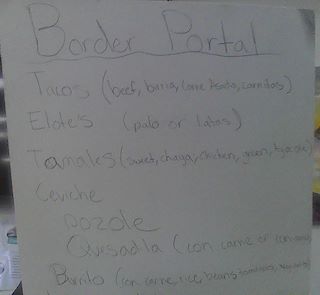 Border Portal
Tacos (beef, birria, Carne Asada, carnitas)
Elote's (palo or latas)
Tamales (sweet, chaya, chicken, green,
Ceviche
pozole
Quisadlla (con carne or con
Burrito (con carne, rice, beans, tomatoes,